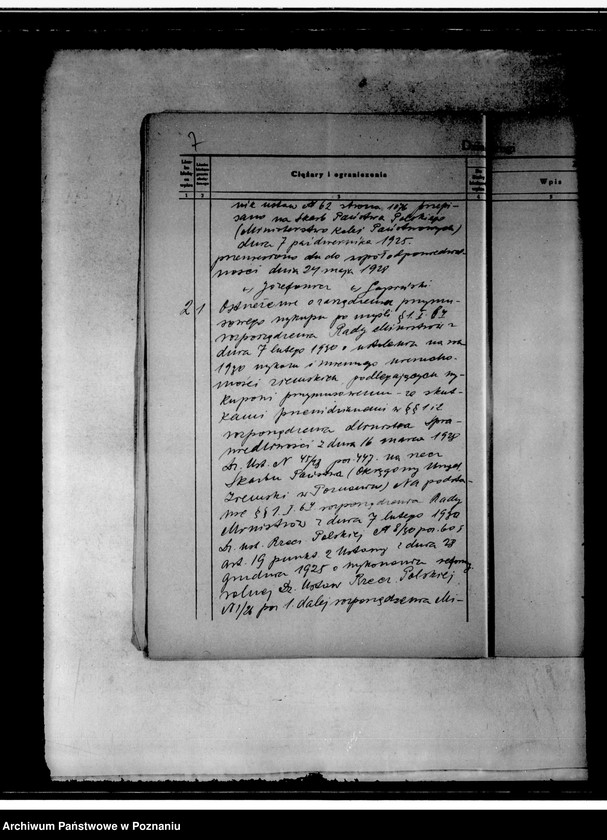 7
Ciężary i ograniczenia
Wpis
1 2 3 4 5
nik ustaw N 62 strona 1076 przepi-
sano na Skarb Państwa Polskiego
(Ministerstwo Kolei Państwowych)
dnia 7 października 1925.
przeniesiono tu do współodpowiedzial-
ności dnia 24 maja 1928
2 1 Ostrzeżenie o zarządzeniu przymu-
sowego wykupu po myśli § 1.
rozporządzenia Rady Ministrów z
dnia 7 lutego 1930 o ustaleniu na rok
1930 wykazu imiennego nierucho-
mości ziemskich, podlegających wy-
kupowi przymusowemu - ze skut-
kami przewidzianemi w §§ 1 i 2
rozporządzenia Ministra Spra-
wiedliwości z dnia 16 marca 1928
Dz. Ust. N 45/28 poz. 447. na rzecz
Skarbu Państwa (Okręgowy Urząd
Ziemski w Poznaniu) Na podsta-
wie §§ 1. rozporządzenia Rady
Ministrów z dnia 7 lutego 1930
Dz. ust. Rzecz. Polskiej N 8/30 poz. 60 §
art. 19 punkt 2 Ustawy z dnia 28
grudnia 1925 o wykonaniu reformy
rolnej Dz. Ustaw Rzecz. Polskiej
N 1/26 poz 1. dalej rozporządzenia Mi-
Archiwum Państwowe w Poznaniu